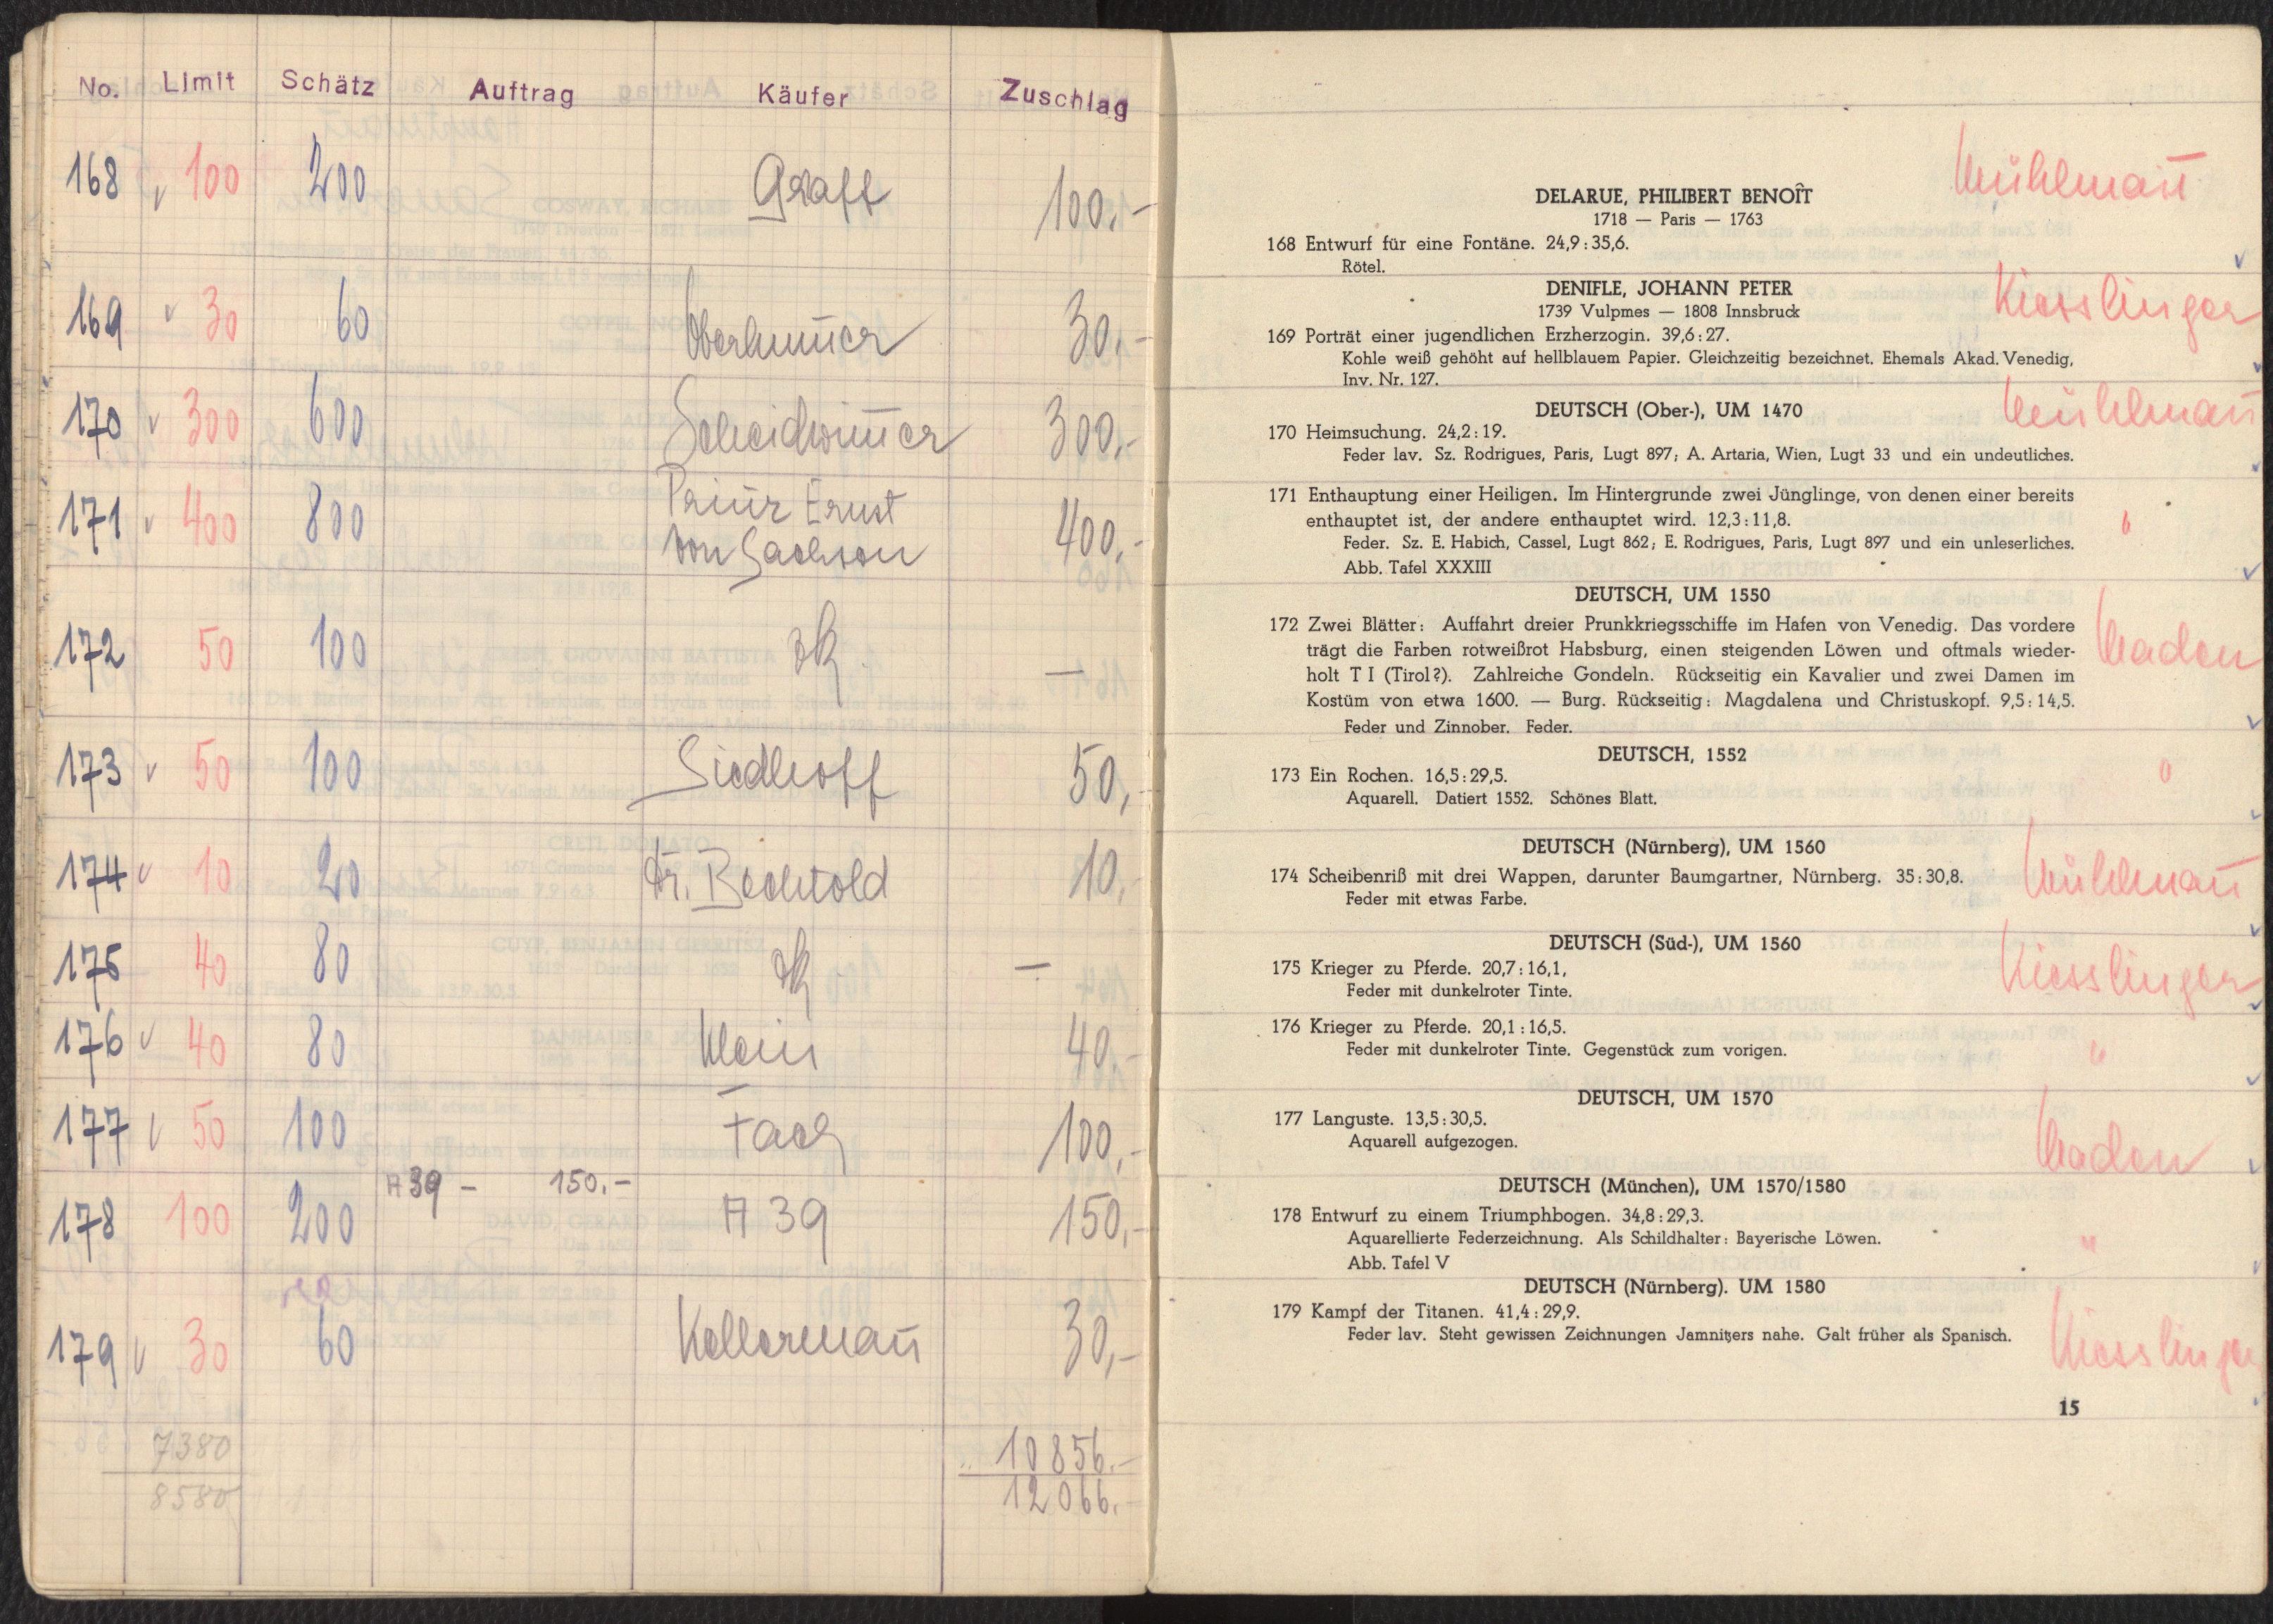 No. Limit Schätz Auftrag Käufer Zuschlag
168 v 100 200 Graff 100.-
169 v 30 60 Oberhummer 30.-
170 v 300 600 Scheidwimmer 300.-
171 v 400 800 Prinz Ernst
von Sachsen 400.-
172 50 100 —
173 v 50 100 Siedhoff 50,-
174 v 10 20 Dr. Bechtold 10.-
175 40 80 —
176 v 40 80 Klein 40.-
177 v 50 100 Fach 100.-
A 39 - 150.-
178 100 200 A 39 150.-
179 v 30 60 Kellermann 30,-
7380 10856.-
8580 12066.-
DELARUE, PHILIBERT BENOÎT Mühlmann
1718 — Paris — 1763
168 Entwurf für eine Fontäne. 24,9 : 35,6.
Rötel.
DENIFLE, JOHANN PETER Kiesslinger
1739 Vulpmes — 1808 Innsbruck
169 Porträt einer jugendlichen Erzherzogin. 39,6 : 27.
Kohle weiß gehöht auf hellblauem Papier. Gleichzeitig bezeichnet. Ehemals Akad. Venedig,
Inv. Nr. 127.
DEUTSCH (Ober-), UM 1470 Mühlmann
170 Heimsuchung. 24,2 : 19.
Feder lav. Sz. Rodrigues, Paris, Lugt 897; A. Artaria, Wien, Lugt 33 und ein undeutliches.
171 Enthauptung einer Heiligen. Im Hintergrunde zwei Jünglinge, von denen einer bereits
enthauptet ist, der andere enthauptet wird. 12,3 : 11,8. "
Feder. Sz. E. Habich, Cassel, Lugt 862; E. Rodrigues, Paris, Lugt 897 und ein unleserliches.
Abb. Tafel XXXIII
DEUTSCH, UM 1550
172 Zwei Blätter: Auffahrt dreier Prunkkriegsschiffe im Hafen von Venedig. Das vordere
trägt die Farben rotweißrot Habsburg, einen steigenden Löwen und oftmals wieder-
holt T I (Tirol?). Zahlreiche Gondeln. Rückseitig ein Kavalier und zwei Damen im
Kostüm von etwa 1600. — Burg. Rückseitig: Magdalena und Christuskopf. 9,5 : 14,5.
Feder und Zinnober. Feder.
DEUTSCH, 1552
173 Ein Rochen. 16,5 : 29,5. "
Aquarell. Datiert 1552. Schönes Blatt.
DEUTSCH (Nürnberg), UM 1560
174 Scheibenriß mit drei Wappen, darunter Baumgartner, Nürnberg. 35 : 30,8. Mühlmann
Feder mit etwas Farbe.
DEUTSCH (Süd-), UM 1560
175 Krieger zu Pferde. 20,7 : 16,1, Kiesslinger
Feder mit dunkelroter Tinte.
176 Krieger zu Pferde. 20,1 : 16,5.
Feder mit dunkelroter Tinte. Gegenstück zum vorigen. "
DEUTSCH, UM 1570
177 Languste. 13,5 : 30,5.
Aquarell aufgezogen.
DEUTSCH (München), UM 1570/1580
178 Entwurf zu einem Triumphbogen. 34,8 : 29,3.
Aquarellierte Federzeichnung. Als Schildhalter: Bayerische Löwen. "
Abb. Tafel V
DEUTSCH (Nürnberg). UM 1580
179 Kampf der Titanen. 41,4 : 29,9.
Feder lav. Steht gewissen Zeichnungen Jamnitzers nahe. Galt früher als Spanisch. Kiesslinger
15